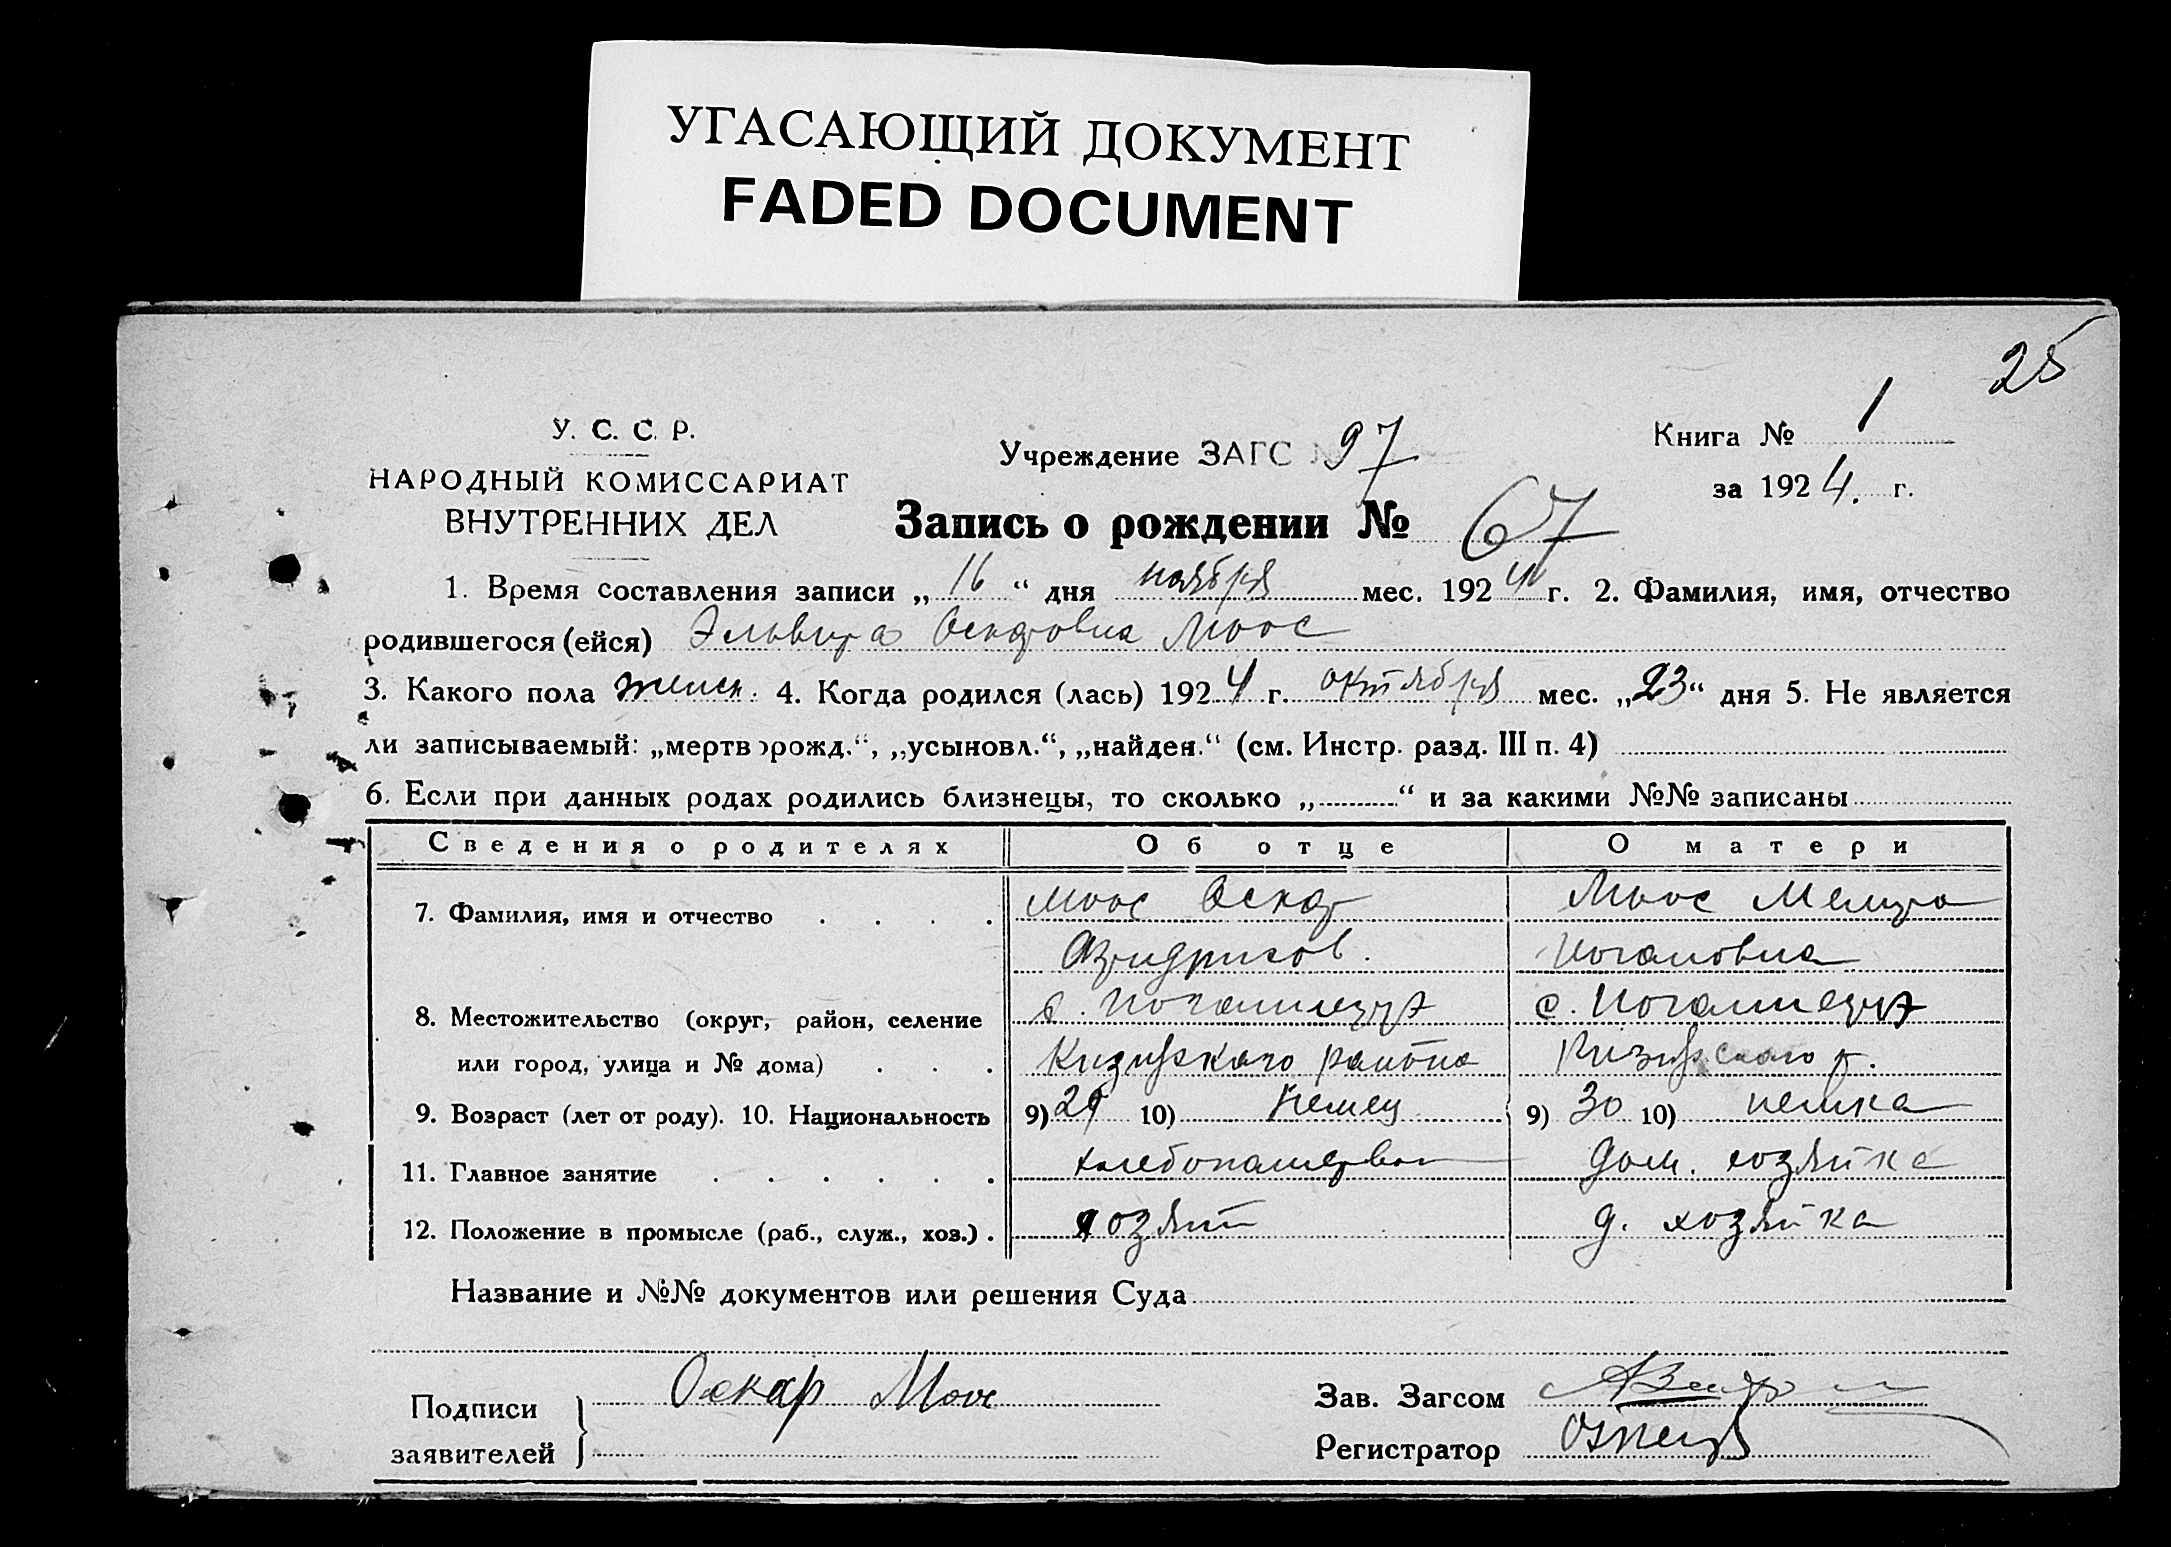 УГАСАЮЩИЙ ДОКУМЕНТ
FADED DOCUMENT
25
У. С. С. Р.
НАРОДНЫЙ КОМИССАРИАТ
ВНУТРЕННИХ ДЕЛ
Учреждение ЗАГС № 97
Книга № 1
за 1924. г.
Запись о рождении № 67
1. Время составления записи „16“ дня ноября мес. 1924 г. 2. Фамилия, имя, отчество
родившегося (ейся) Эльвира Оскаровна Моос
3. Какого пола женск. 4. Когда родился (лась) 1924 г. октября мес. „23“ дня 5. Не является
ли записываемый: „мертворожд.“, „усыновл.“, „найден.“ (см. Инстр. разд. III п. 4)
6. Если при данных родах родились близнецы, то сколько „ “ и за какими №№ записаны
Сведения о родителях Об отце О матери
7. Фамилия, имя и отчество Моос Оскар Моос
Иогановна
8. Местожительство (округ, район, селение с. с.
или город, улица и № дома) района р.
9. Возраст (лет от роду). 10. Национальность 9) 29 10) Немец 9) 30 10) немка
11. Главное занятие дом. хозяйка
12. Положение в промысле (раб., служ., хоз.) хозяин д. хозяйка
Название и №№ документов или решения Суда
Подписи
заявителей
Оскар Моос
Зав. Загсом
Регистратор